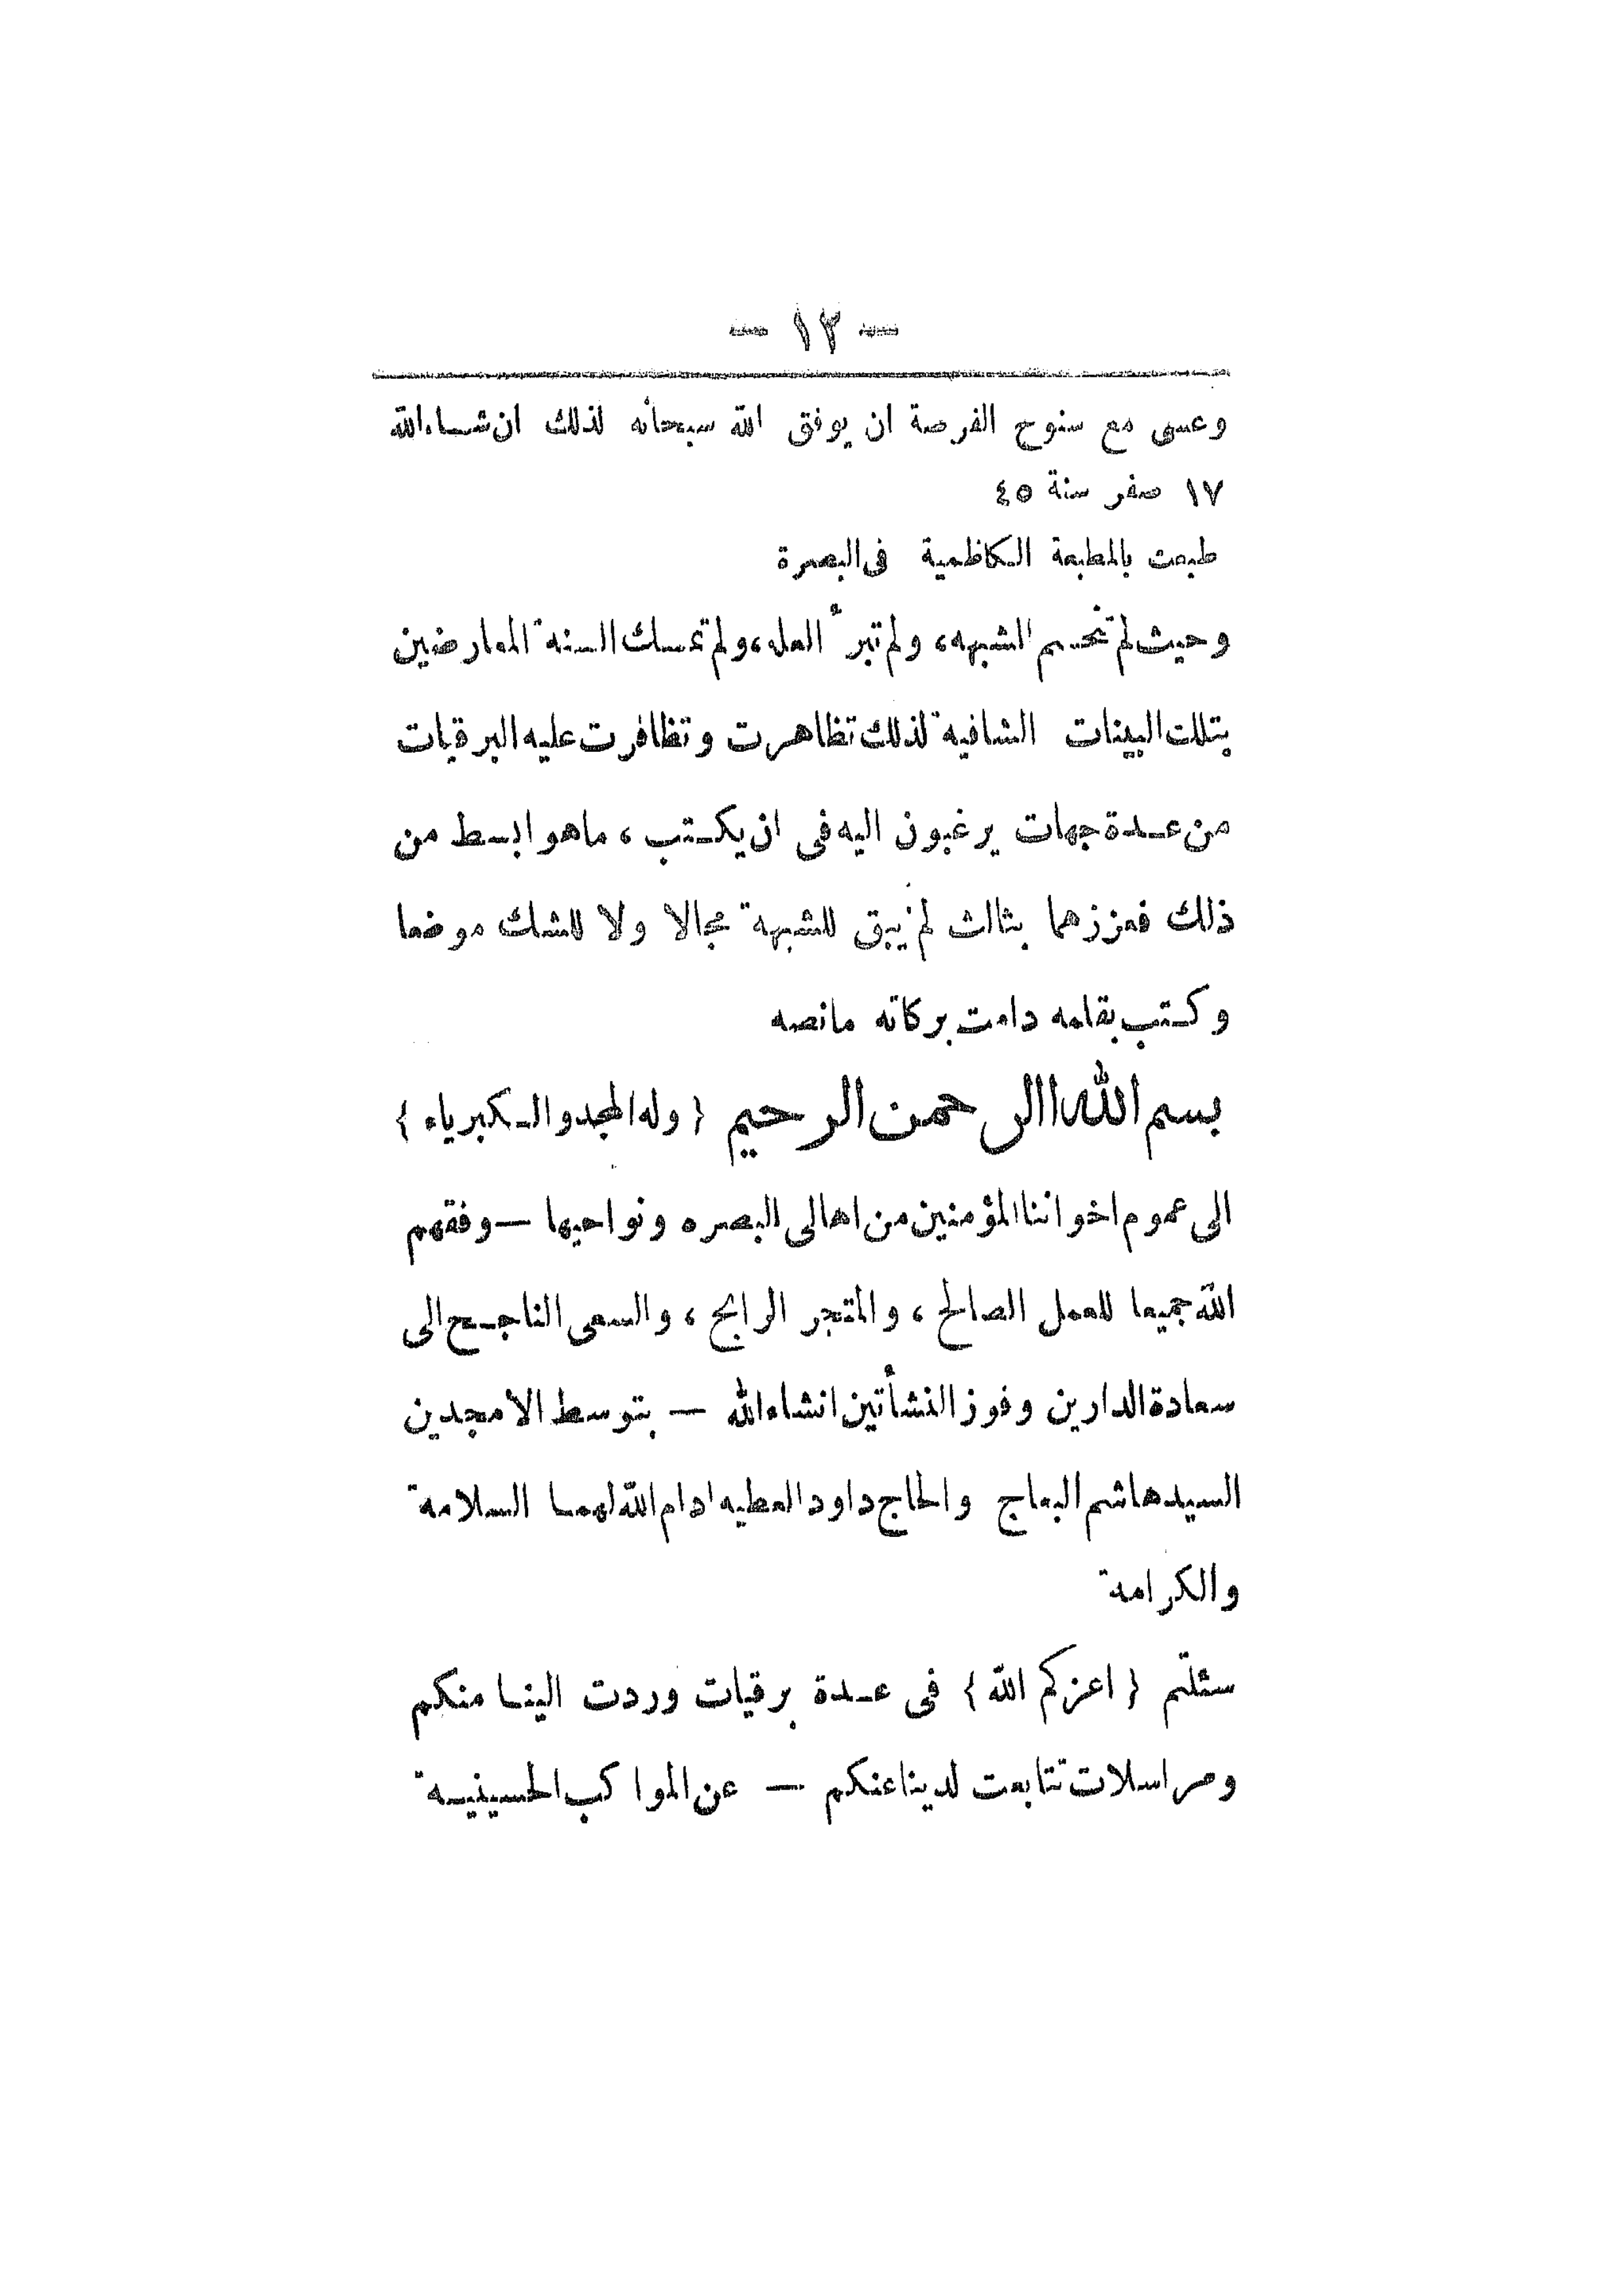 — ١٣ —
وعسى مع سنوح الفرصة ان يوفق الله سبحانه لذلك ان شاء الله
١٧ صفر سنة ٤٥
طبعت بالمطبعة الكاظمية فى البصرة
وحيث لم تنحسم الشبهه، ولم تبرأ العله، ولم تمسك السنة المعارضين
بتلك البينات الشافية لذلك تظاهرت وتظافرت عليه البرقيات
من عدة جهات يرغبون اليه فى ان يكتب، ما هو ابسط من
ذلك فعززهما بثالث لم يبق للشبهة مجالا ولا للشك موضعا
وكتب بقلمه دامت بركاته مانصه
بسم الله االرحمن الرحيم { وله المجد والكبرياء }
الى عموم اخواننا المؤمنين من اهالى البصره ونواحيها — وفقهم
الله جميعا للعمل الصالح، والمتجر الرابح، والسعى الناجح الى
سعادة الدارين وفوز النشأتين انشاء الله — بتوسط الامجدين
السيد هاشم البعاج والحاج داود العطيه ادام الله لهما السلامة
والكرامة
سئلتم { اعزكم الله } فى عدة برقيات وردت الينا منكم
ومراسلات تتابعت لدينا عنكم — عن المواكب الحسينية